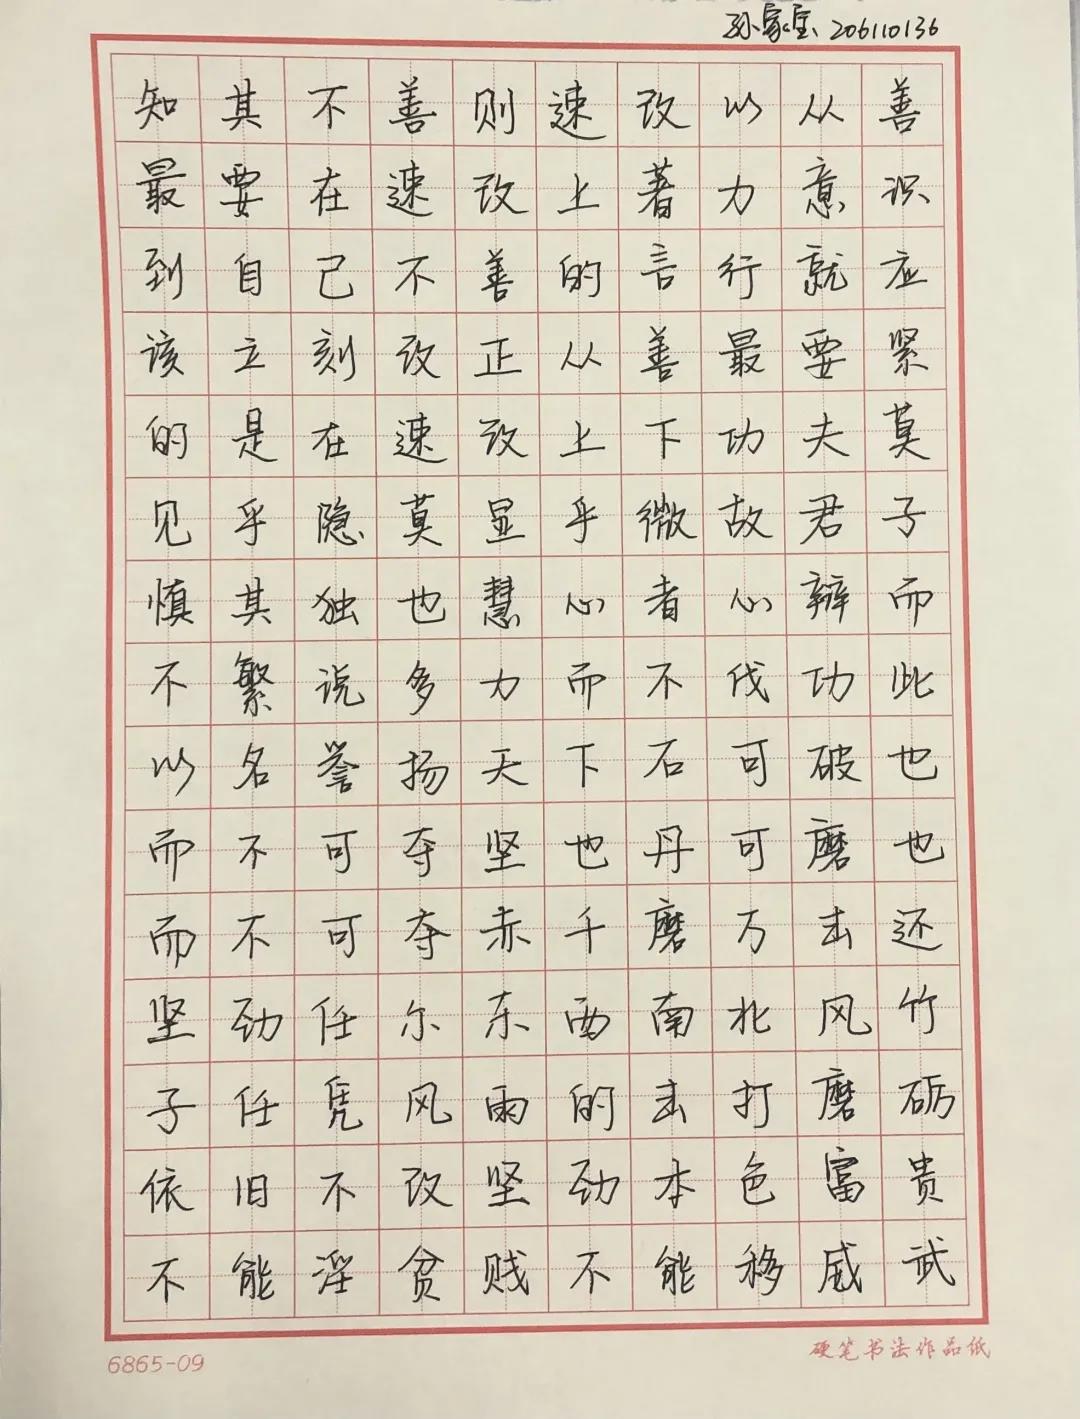 孙家宝 206110136
知其不善则速改以从善
最要在速改上著力意识
到自己不善的言行就应
该立刻改正从善最要紧
的是在速改上下功夫莫
见乎隐莫显乎微故君子
慎其独也慧心者心辩而
不繁说多力而不伐功此
以名誉扬天下石可破也
而不可夺坚也丹可磨也
而不可夺赤千磨万击还
坚劲任尔东西南北风竹
子任凭风雨的击打磨砺
依旧不改坚劲本色富贵
不能淫贫贱不能移威武
6865-09 硬笔书法作品纸